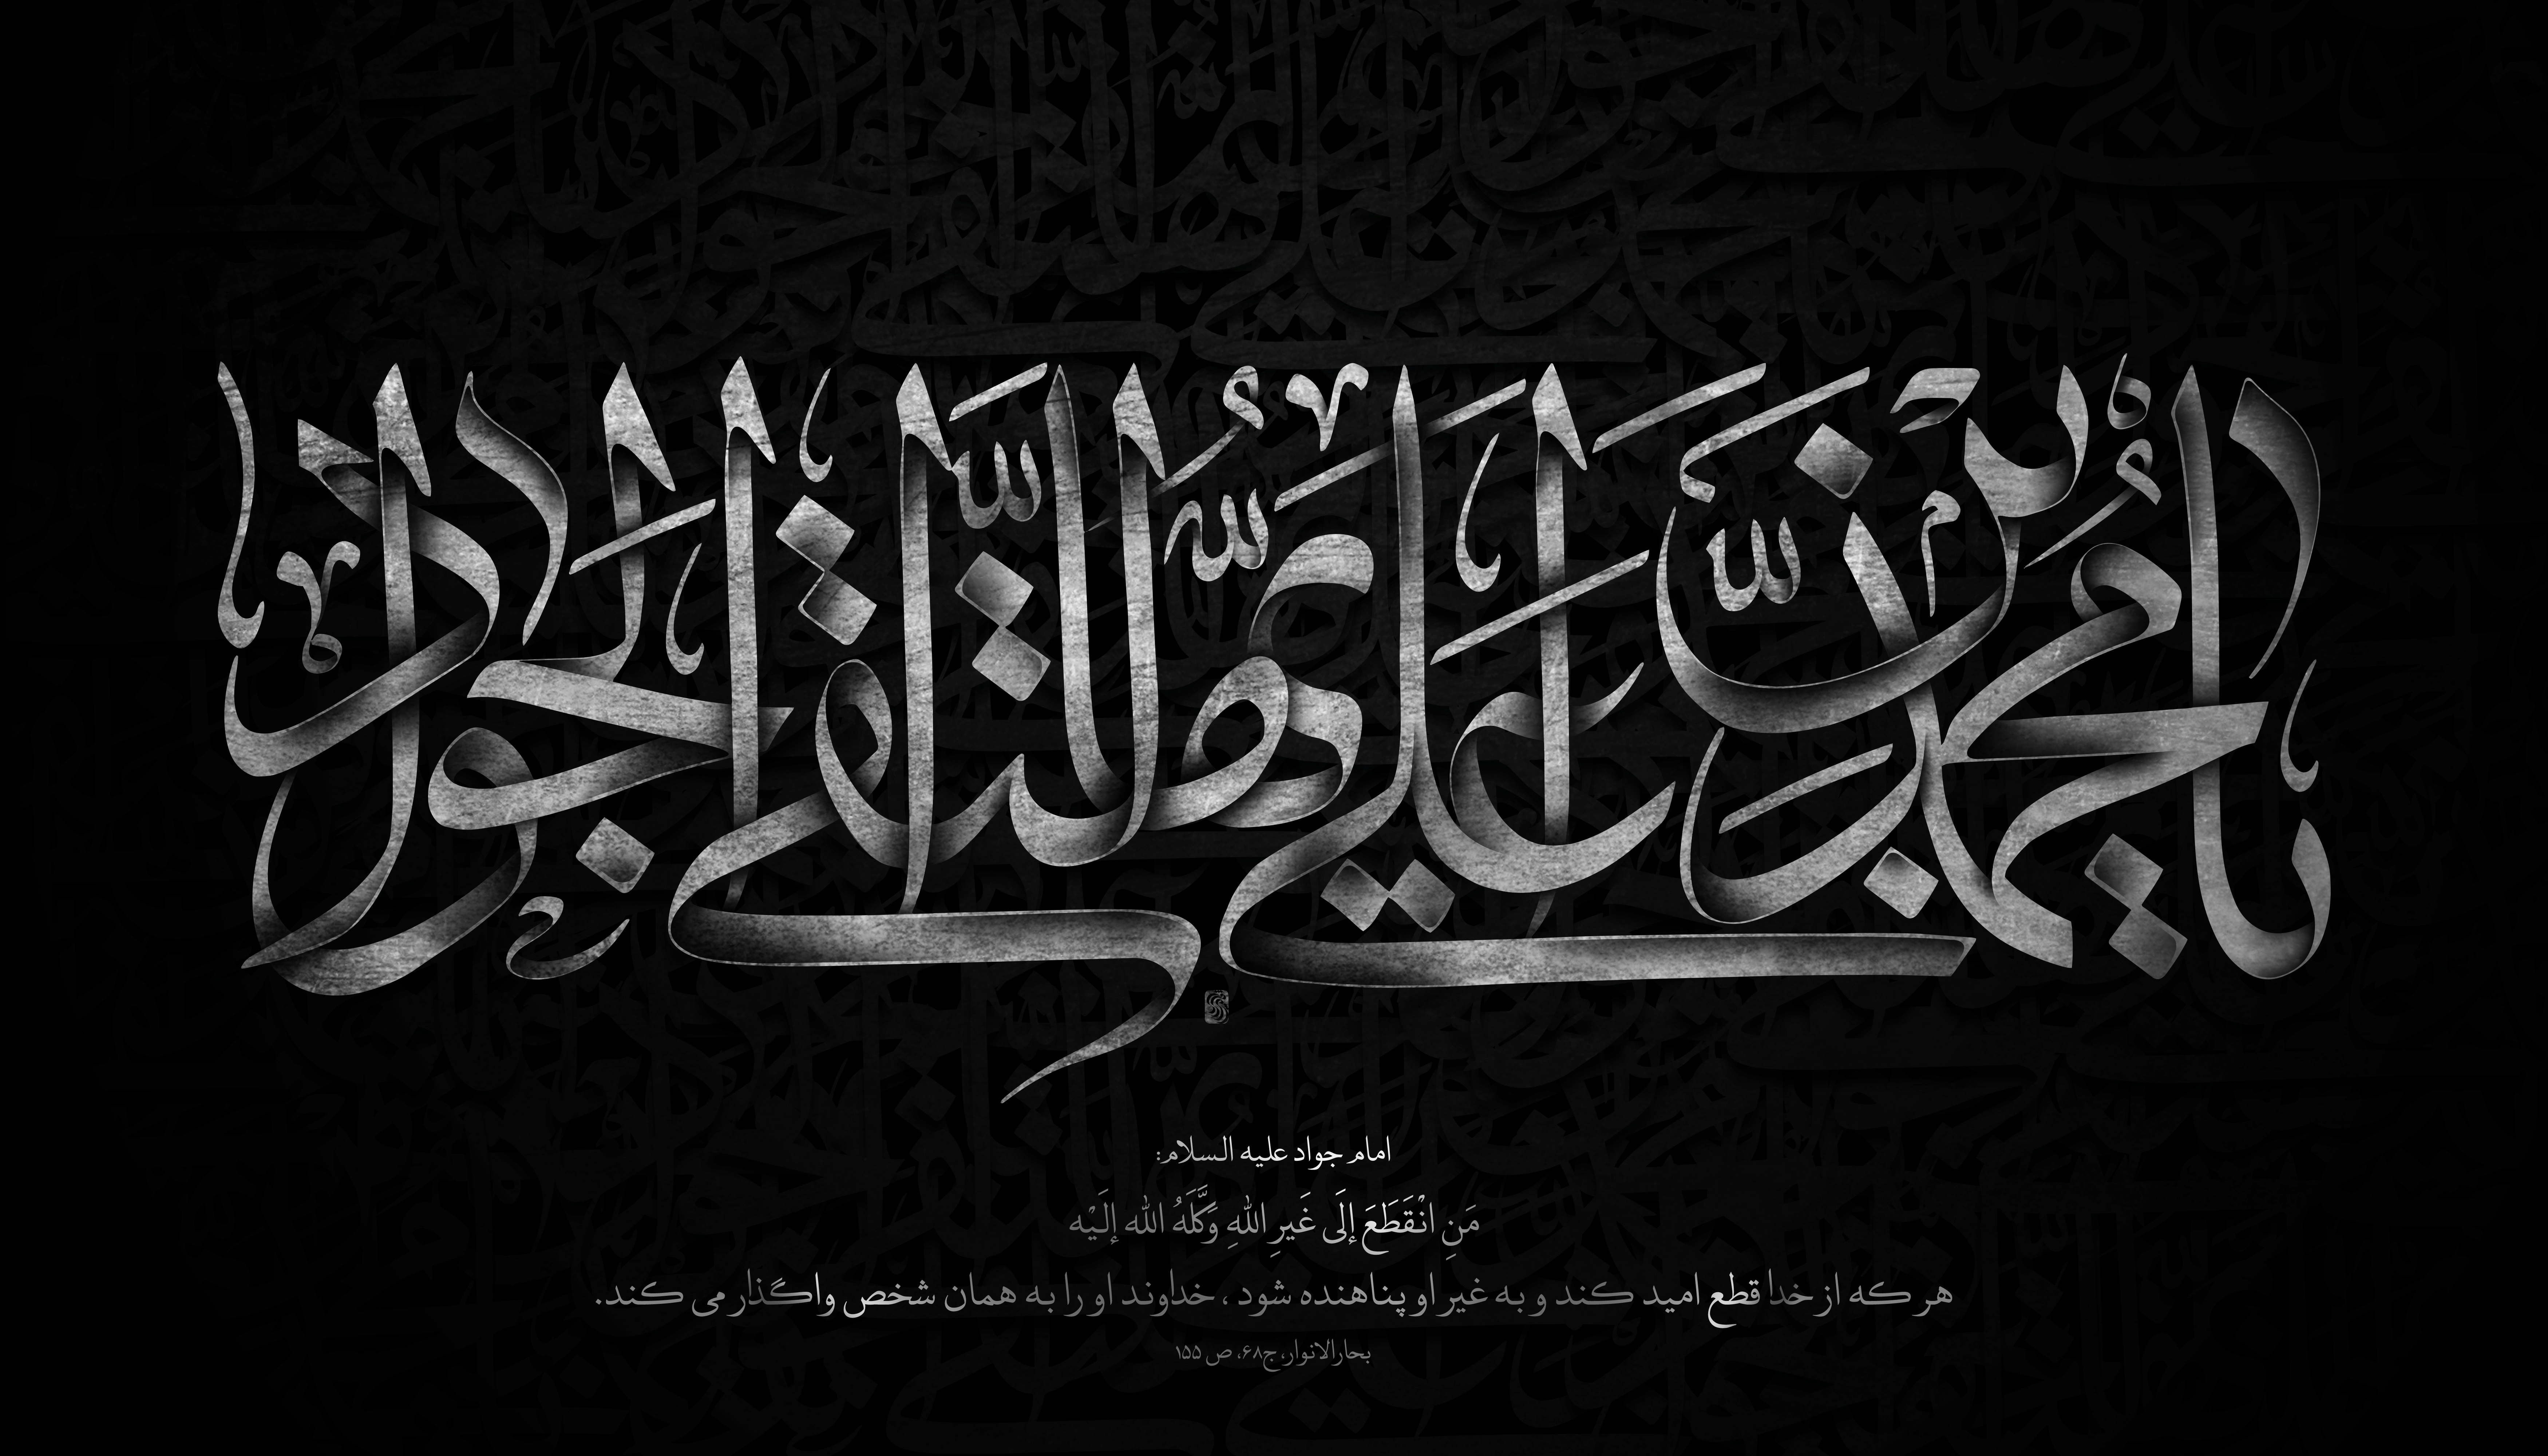 یا محمد بن علی ایها التقی الجواد
امام جواد علیه السلام:
مَنِ انْقَطَعَ إلَی غَیرِ اللهِ وَکَّلَهُ الله إلَیْه
هر که از خدا قطع امید کند و به غیر او پناهنده شود ، خداوند او را به همان شخص واگذار می کند.
بحارالانوار،ج۶۸، ص ۱۵۵